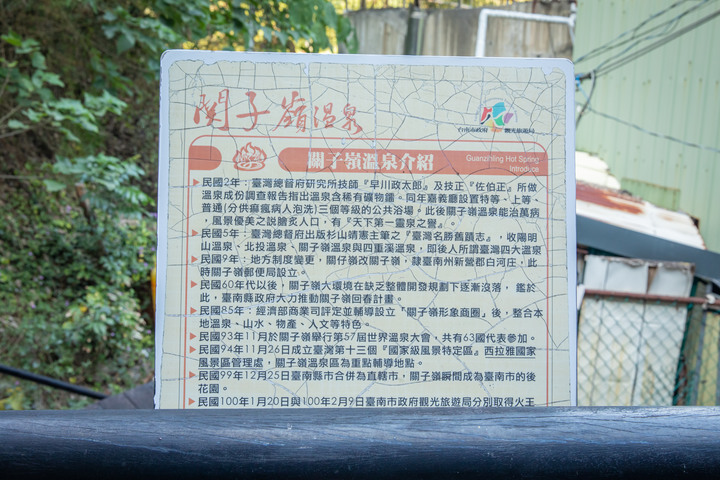 關子嶺溫泉
台南市政府 觀光旅遊局
關子嶺溫泉介紹
Guanzihling Hot Spring
Introduce
民國2年：臺灣總督府研究所技師『早川政太郎』及技正『佐伯正』所做
溫泉成份調查報告指出溫泉含稀有礦物鐳。同年嘉義廳設置特等、上等、
普通(分供痲瘋病人泡洗)三個等級的公共浴場。此後關子嶺溫泉能治萬病
，風景優美之說膾炙人口，有『天下第一靈泉之譽』。
民國5年：臺灣總督府出版杉山靖憲主筆之『臺灣名勝舊蹟志』，收陽明
山溫泉、北投溫泉、關子嶺溫泉與四重溪溫泉，即後人所謂臺灣四大溫泉
民國9年：地方制度變更，關仔嶺改關子嶺，隸臺南州新營郡白河庄，此
時關子嶺郵便局設立。
民國60年代以後，關子嶺大環境在缺乏整體開發規劃下逐漸沒落， 鑑於
此，臺南縣政府大力推動關子嶺回春計畫。
民國85年：經濟部商業司評定並輔導設立「關子嶺形象商圈」後，整合本
地溫泉、山水、物產、人文等特色。
民國93年11月於關子嶺舉行第57屆世界溫泉大會，共有63國代表參加。
民國94年11月26日成立臺灣第十三個『國家級風景特定區』西拉雅國家
風景區管理處，關子嶺溫泉區為重點輔導地點。
民國99年12月25日臺南縣市合併為直轄市，關子嶺瞬間成為臺南市的後
花園。
民國100年1月20日與100年2月9日臺南市政府觀光旅遊局分別取得火王